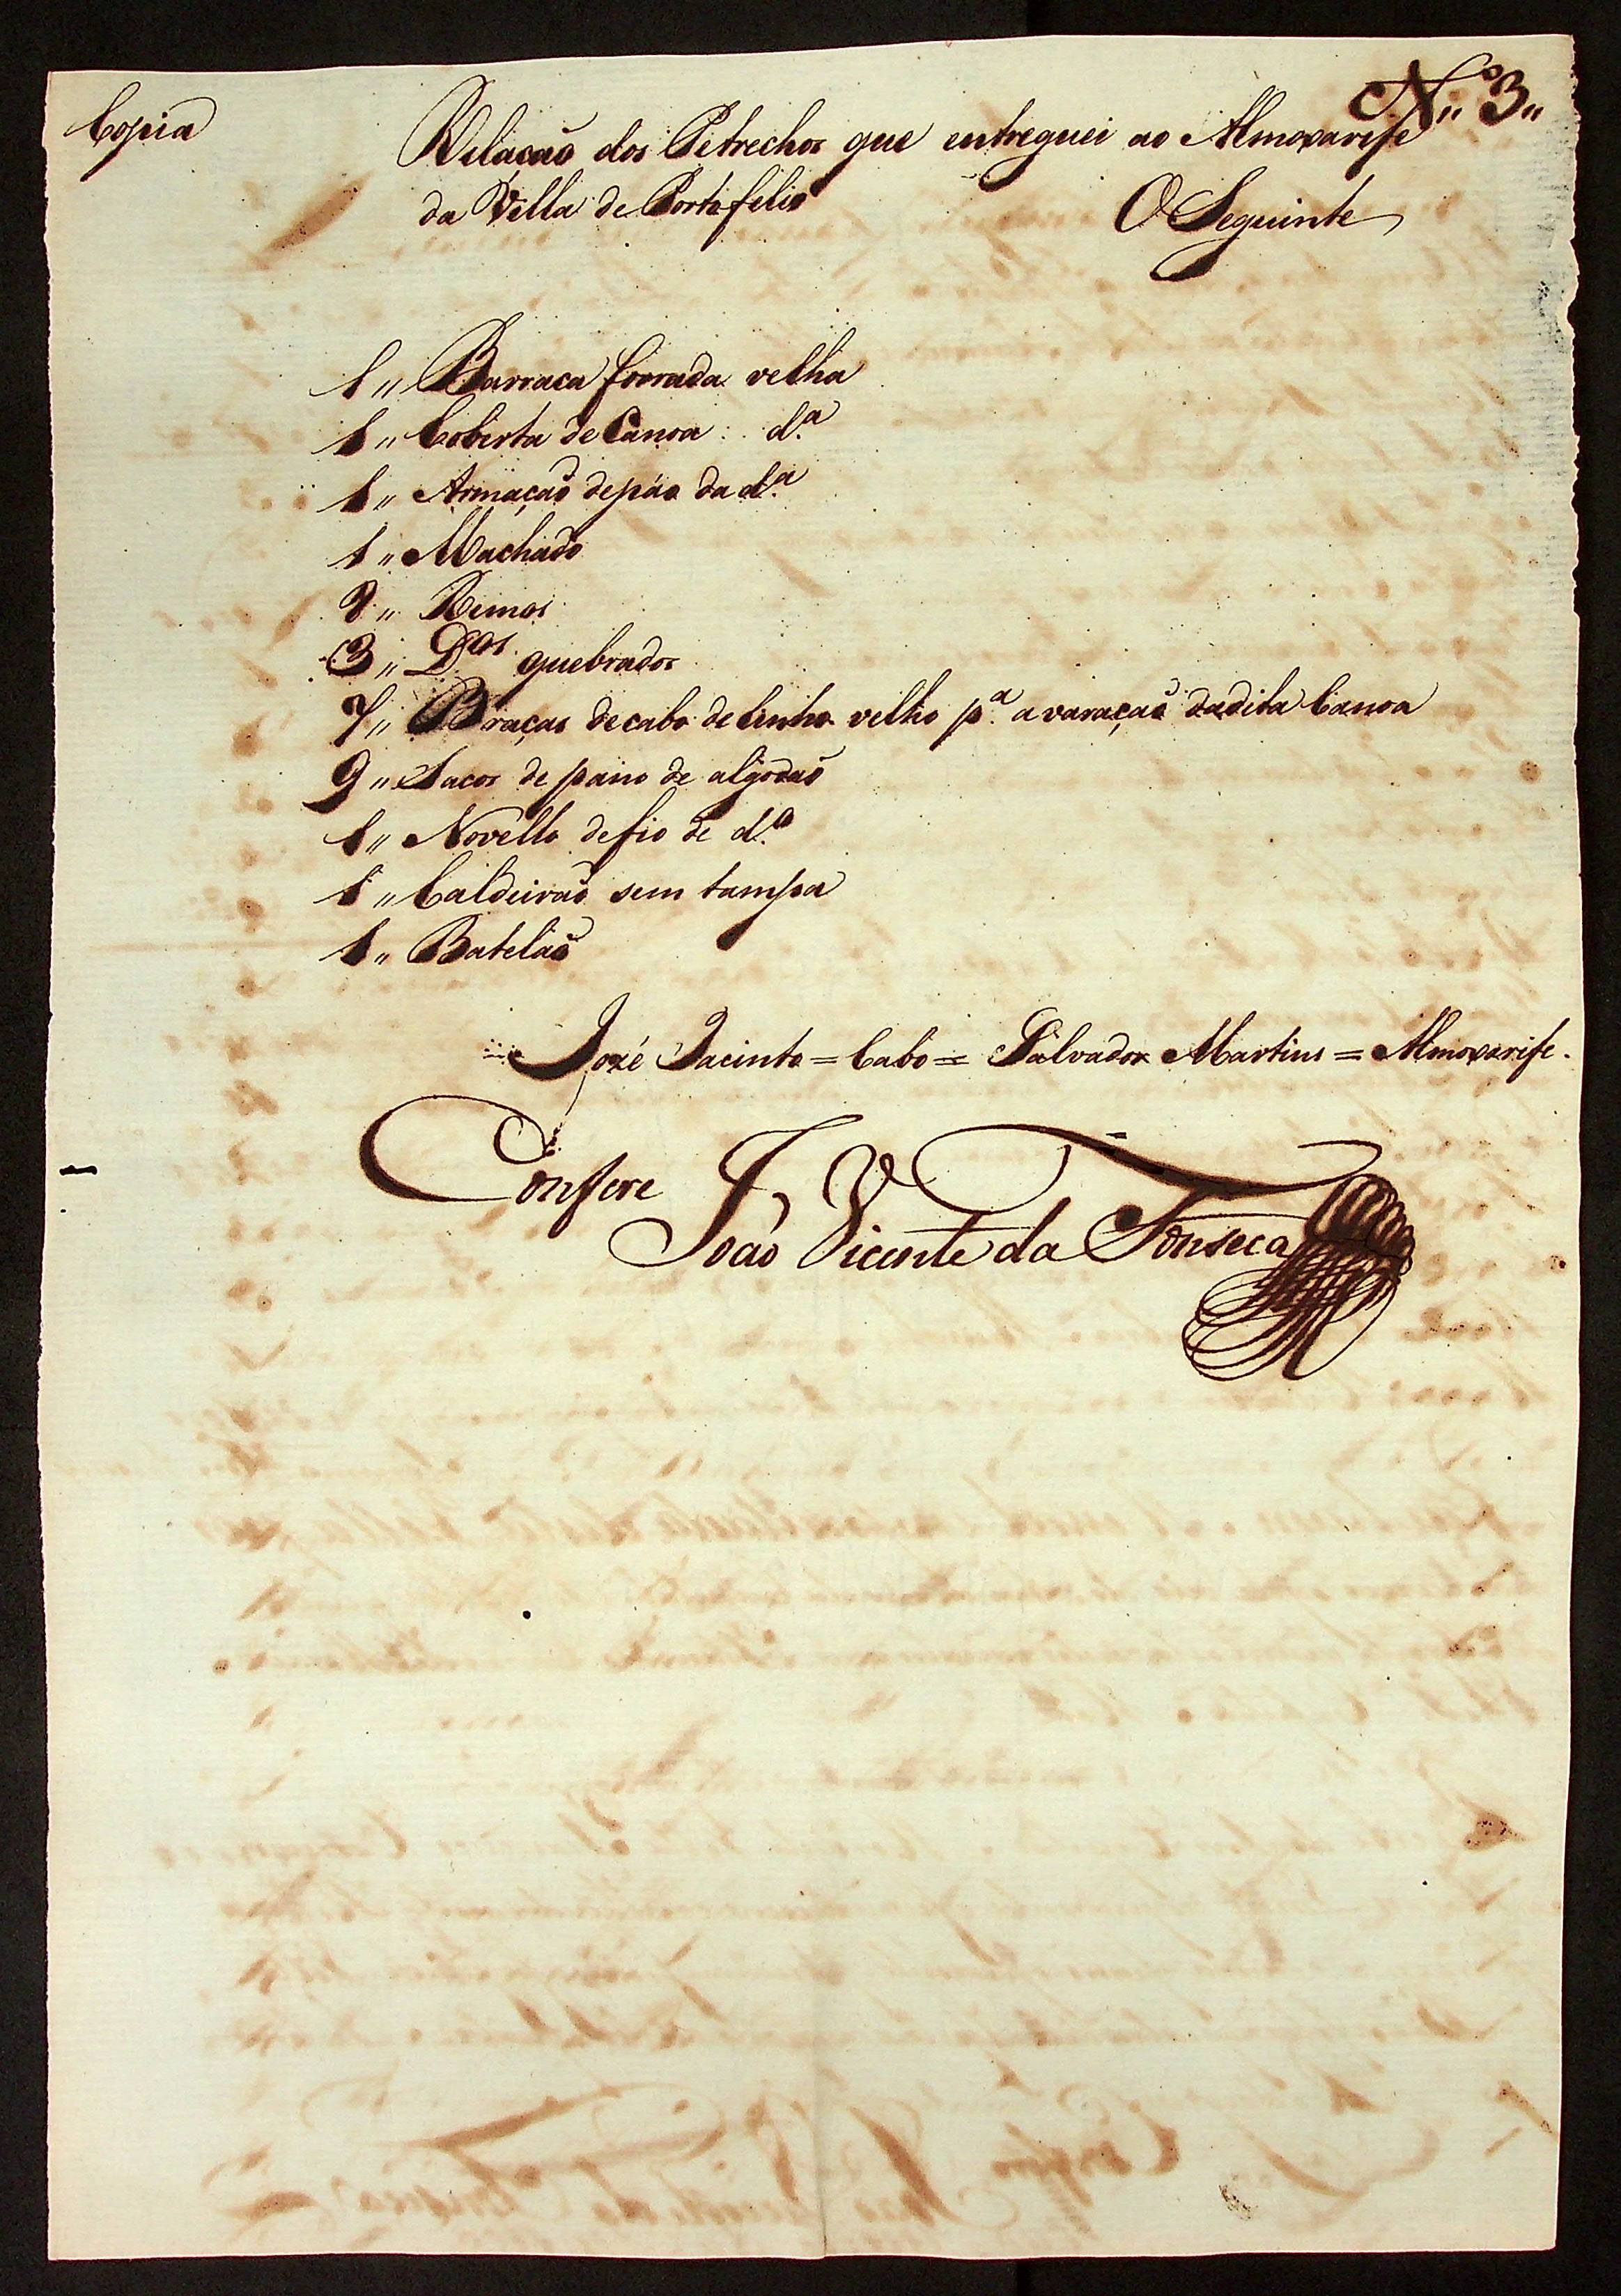 Copia
N.º 3,,
Relaçaõ dos Petrechos que entreguei ao Almoxarife
da Villa de Portofelis
O Seguinte
1,, Barraca forrada velha
1,, Coberta de Canoa d.ª
1,, Armaçaõ de páo da d.ª
1,, Machado
8,, Remos
3,, D.os quebrados
7,, Braças de cabo de linho velho p.ª a varaçaõ da dita Canoa
9,, Sacos de pano de algodaõ
1,, Novello de fio de d.º
1,, Caldeiraõ sem tampa
1,, Batelaõ
José Jacinto = Cabo = Salvador Martins = Almoxarife.
Confere
João Vicente da Fonseca